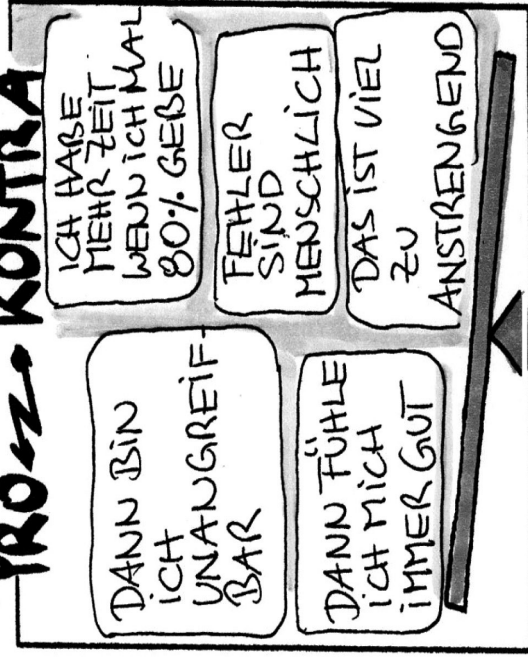 PRO KONTRA
DANN BIN
ICH
UNANGREIF-
BAR
DANN FÜHLE
ICH MICH
IMMER GUT
ICH HABE
MEHR ZEIT
WENN ICH MAL
80% GEBE
FEHLER
SIND
MENSCHLICH
DAS IST VIEL
ZU
ANSTRENGEND